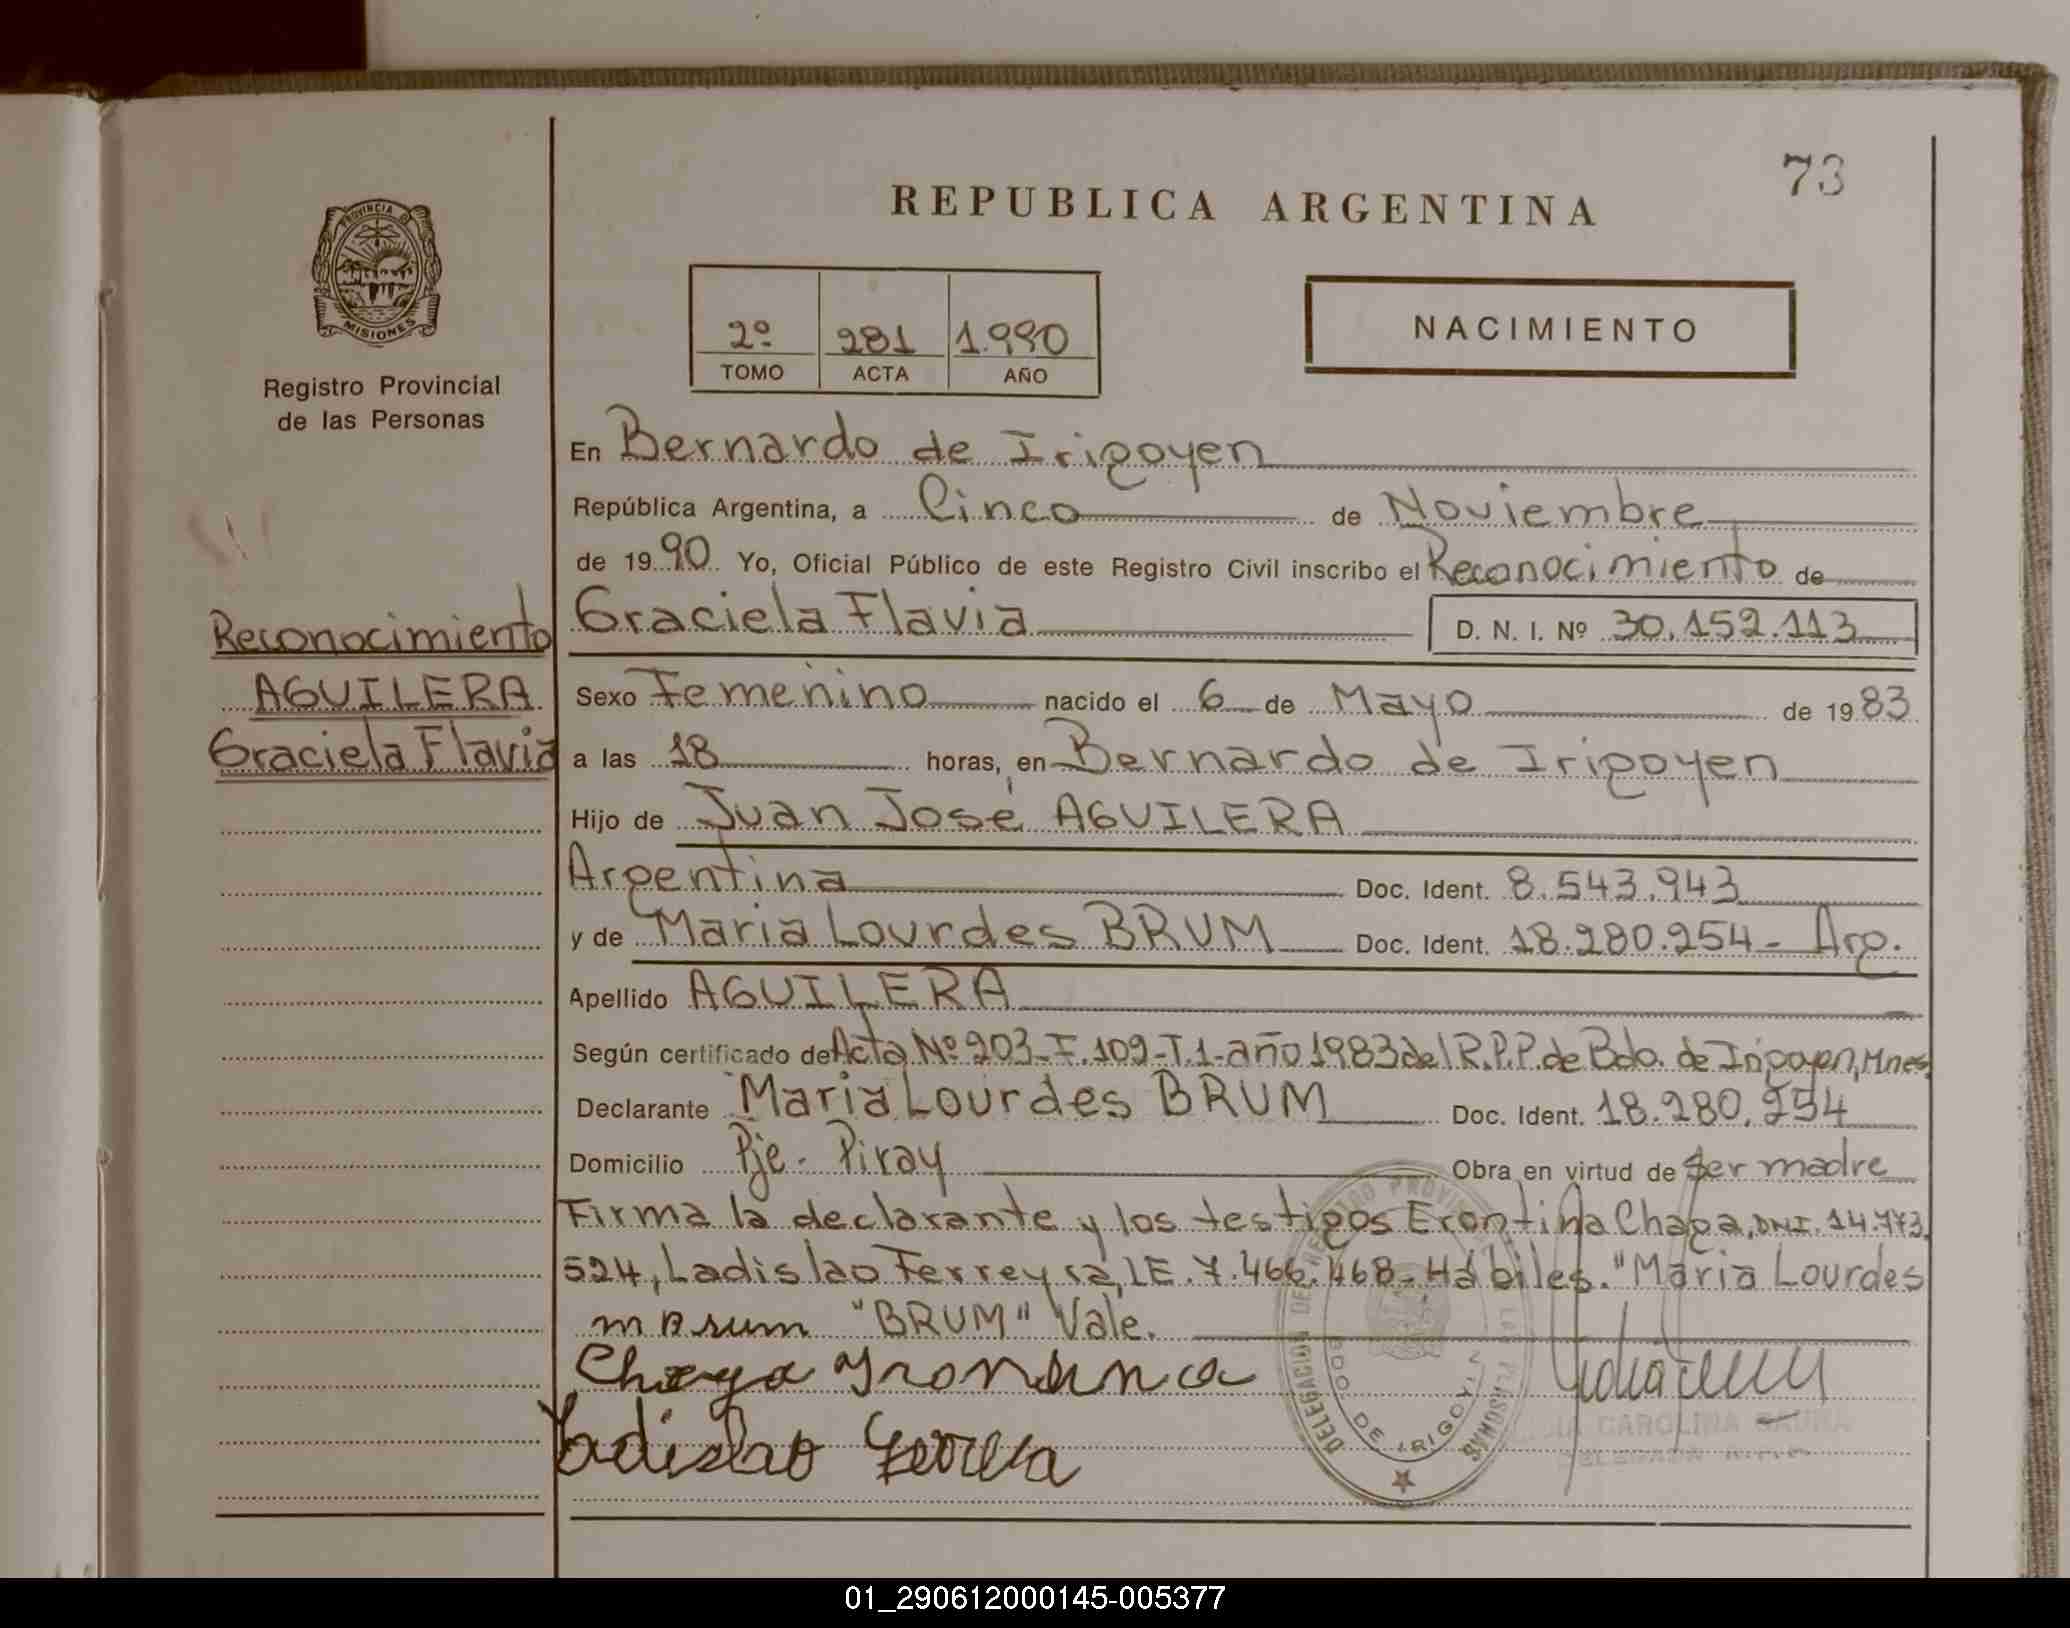 73
REPUBLICA ARGENTINA
PROVINCIA DE
MISIONES
Registro Provincial
de las Personas
2º 281 1.990
TOMO ACTA AÑO
NACIMIENTO
En Bernardo de Irigoyen
República Argentina, a Cinco de Noviembre
de 1990 Yo, Oficial Público de este Registro Civil inscribo el Reconocimiento de
Graciela Flavia D. N. I. Nº 30.152.113
Reconocimiento
AGUILERA
Graciela Flavia
Sexo Femenino nacido el 6 de Mayo de 1983
a las 18 horas, en Bernardo de Irigoyen
Hijo de Juan José AGUILERA
Argentina Doc. Ident. 8.543.943
y de Maria Lourdes BRUM Doc. Ident. 18.280.254- Arg.
Apellido AGUILERA
Según certificado de Acta Nº 203-F.109-T.1-año 1983 del R.P.P. de Bdo. de Irigoyen, Mnes.
Declarante Maria Lourdes BRUM Doc. Ident. 18.280.254
Domicilio Pje. Piray Obra en virtud de ser madre
Firma la declarante y los testigos Erontina Chaga, DNI. 14.773.
524, Ladislao Ferreyra, LE. 7.466.468- Hábiles. "Maria Lourdes
m Brum "BRUM" Vale.
Chaga
Ladislao
DELEGACION DEL REGISTRO PROVINCIAL DE LAS PERSONAS
BDO DE IRIGOYEN
CAROLINA
DELEGADA R.P.P.
01_290612000145-005377